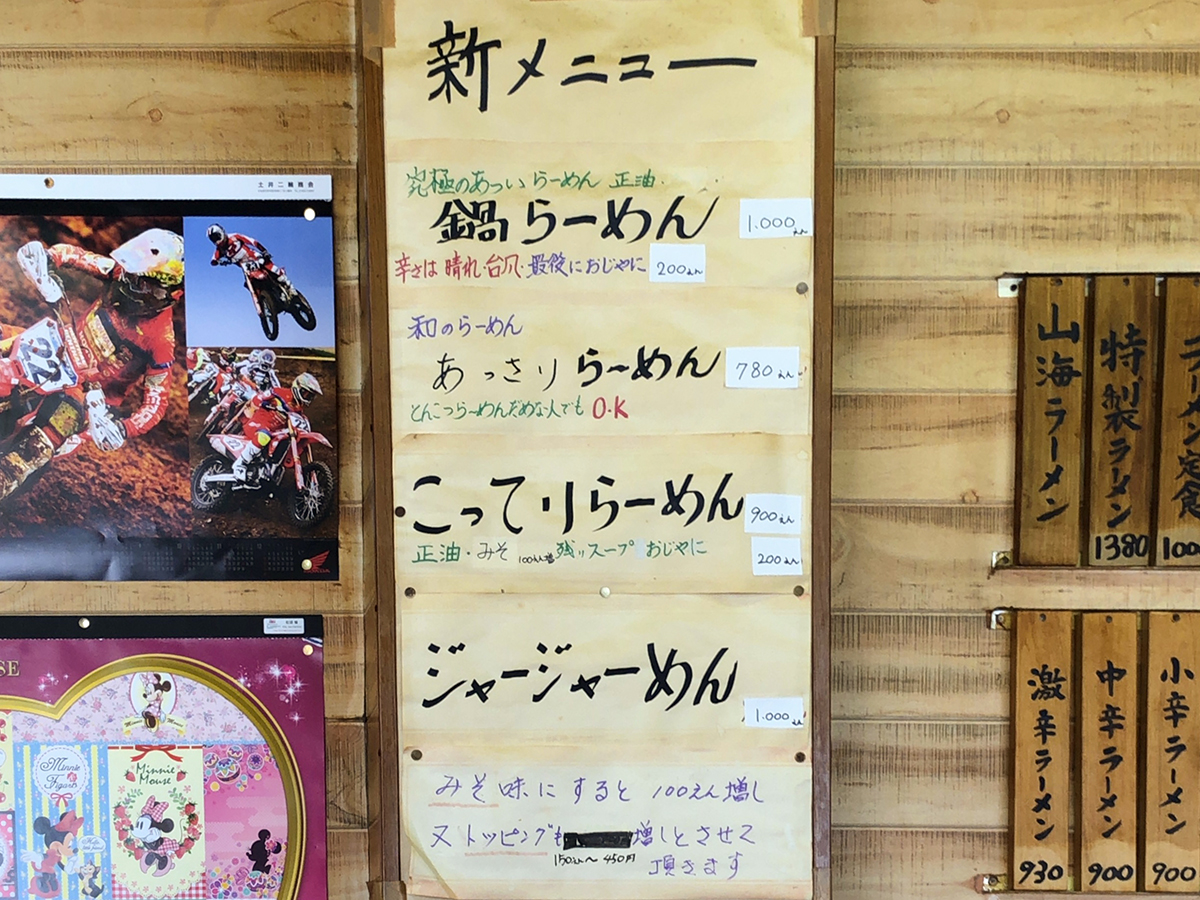 新メニュー
究極のあっい らーめん 正油
鍋らーめん 1.000えん
辛さは 晴れ・台風・最後におじやに 200えん
和のらーめん
あっさり らーめん 780えん
とんこつらーめんだめな人でも O.K
こってりらーめん 900えん
正油・みそ 100えん増 残りスープ おじやに 200えん
ジャージャーめん
1.000えん
みそ味にすると 100えん増し
又トッピングも 増しとさせて
150えん〜450円 頂きます
土井二輪商会
22
HONDA
Minnie Figaro
Minnie Mouse
山海ラーメン
特製ラーメン
1380
激辛ラーメン
930
中辛ラーメン
900
小辛ラーメン
900